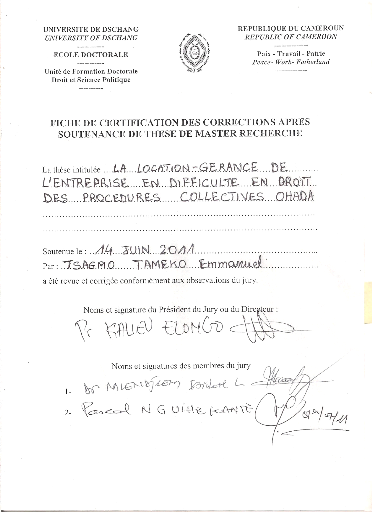 UNIVERSITE DE DSCHANG
UNIVERSITY OF DSCHANG
ECOLE DOCTORALE
Unité de Formation Doctorale
Droit et Science Politique
REPUBLIQUE DU CAMEROUN
REPUBLIC OF CAMEROON
Paix - Travail - Patrie
Peace - Work - Fatherland
FICHE DE CERTIFICATION DES CORRECTIONS APRÈS
SOUTENANCE DE THESE DE MASTER RECHERCHE
La thèse intitulée LA LOCATION-GERANCE DE
L'ENTREPRISE EN DIFFICULTE EN DROIT
DES PROCEDURES COLLECTIVES OHADA
Soutenue le : 14 JUIN 2011
Par : TSAGMO TAMEKO Emmanuel
a été revue et corrigée conformément aux observations du jury.
Noms et signature du Président du Jury ou du Directeur :
Pr KALIEU ELONGO
Noms et signatures des membres du jury
1. Dr
2. Pascal NGUIHE KANTE